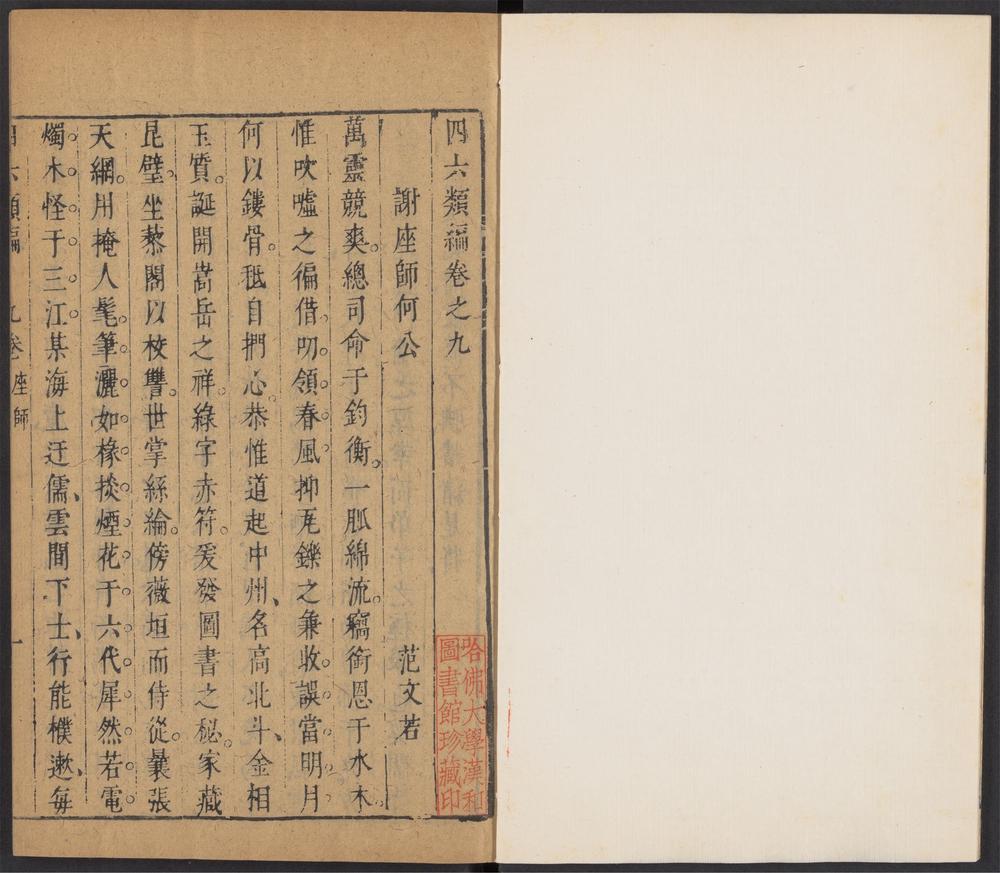 四六類編卷之九
謝座師何公
范文若
萬靈競爽。總司命于鈞衡。一脈綿流。竊銜恩于水木。
惟吹噓之徧借。叨領春風。抑瓦鑠之兼收。誤當明月。
何以鏤骨。秪自捫心。恭惟道起中州、名高北斗、金相
玉質。誕開嵩岳之祥。綠字赤符。爰發圖書之秘。家藏
昆璧。坐藜閣以校讐。世掌絲綸。傍薇垣而侍從。曩張
天網。用掩人髦。筆灑如椽。掞煙花于六代。犀然若電
燭。木怪于三江。某海上迂儒、雲間下士、行能樸遬、每
四六類編
九卷
座師
一
哈佛大學漢和
圖書館珍藏印